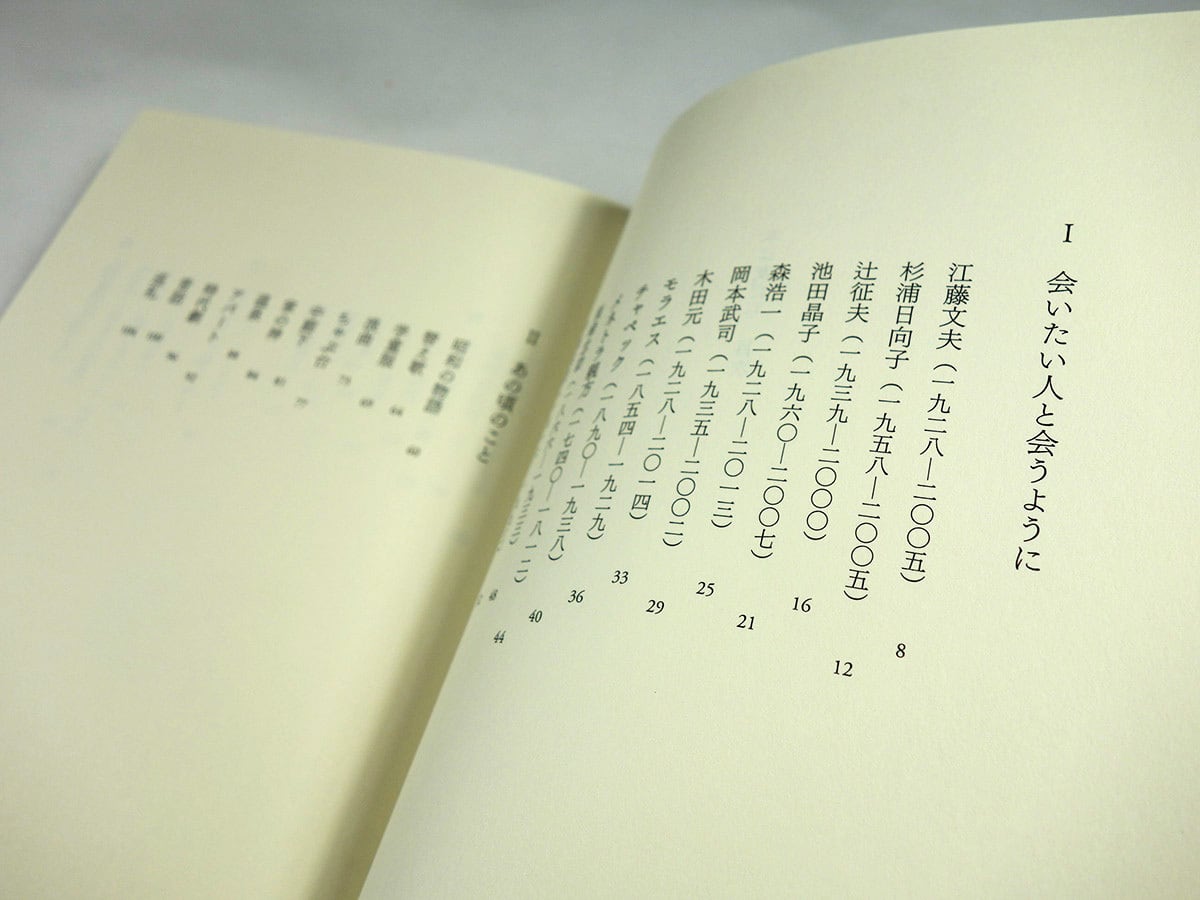 I 会いたい人と会うように
江藤文夫（一九二八―二〇〇五） 8
杉浦日向子（一九五八―二〇〇五） 12
辻征夫（一九三九―二〇〇〇） 16
池田晶子（一九六〇―二〇〇七） 21
森浩一（一九二八―二〇一三） 25
岡本武司（一九三五―二〇〇二） 29
木田元（一九二八―二〇一四） 33
モラエス（一八五四―一九二九） 36
チャペック（一八九〇―一九三八） 40
メネトラ親方（一七四〇―一八一二） 44
48
あの頃のこと
昭和の物語
替え歌
浪曲
ちゃぶ台
中廊下
家の神
温泉
アパート
時代劇
巡礼